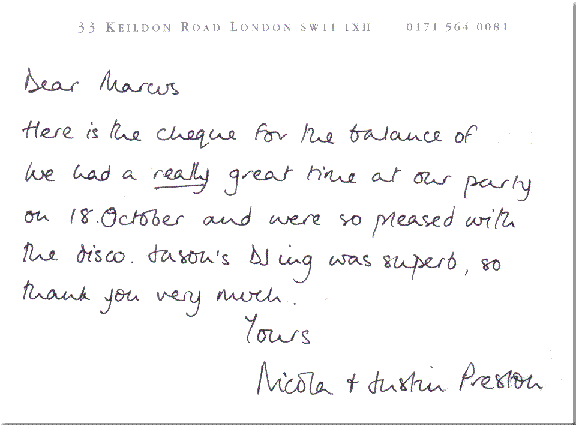 33 KEILDON ROAD LONDON SW11 1XH 0171 564 0081
Dear Marcus
Here is the cheque for the balance of
We had a really great time at our party
on 18. October and were so pleased with
the disco. Jason's DJing was superb, so
thank you very much.
Yours
Nicola + Justin Preston